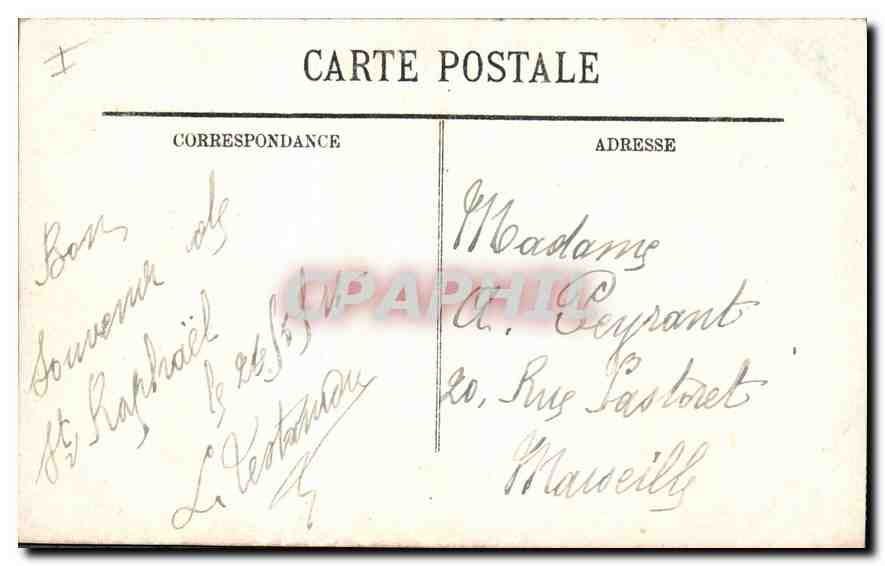 I
CARTE POSTALE
CORRESPONDANCE
ADRESSE
Bon
Souvenir de
St Raphaël
le
Madame
A. Peyrant
20, Rue Pastoret
Marseille
CPAPHIL